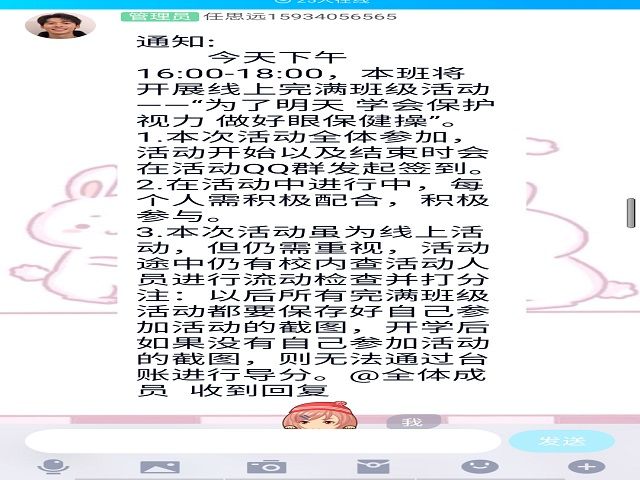 23人在线
管理员 任思远15934056565
通知:
今天下午
16:00-18:00，本班将
开展线上完满班级活动
——“为了明天 学会保护
视力 做好眼保健操”。
1.本次活动全体参加，
活动开始以及结束时会
在活动QQ群发起签到。
2.在活动中进行中，每
个人需积极配合，积极
参与。
3.本次活动虽为线上活
动，但仍需重视，活动
途中仍有校内查活动人
员进行流动检查并打分
注：以后所有完满班级
活动都要保存好自己参
加活动的截图，开学后
如果没有自己参加活动
的截图，则无法通过台
账进行导分。@全体成
员 收到回复
我
发送